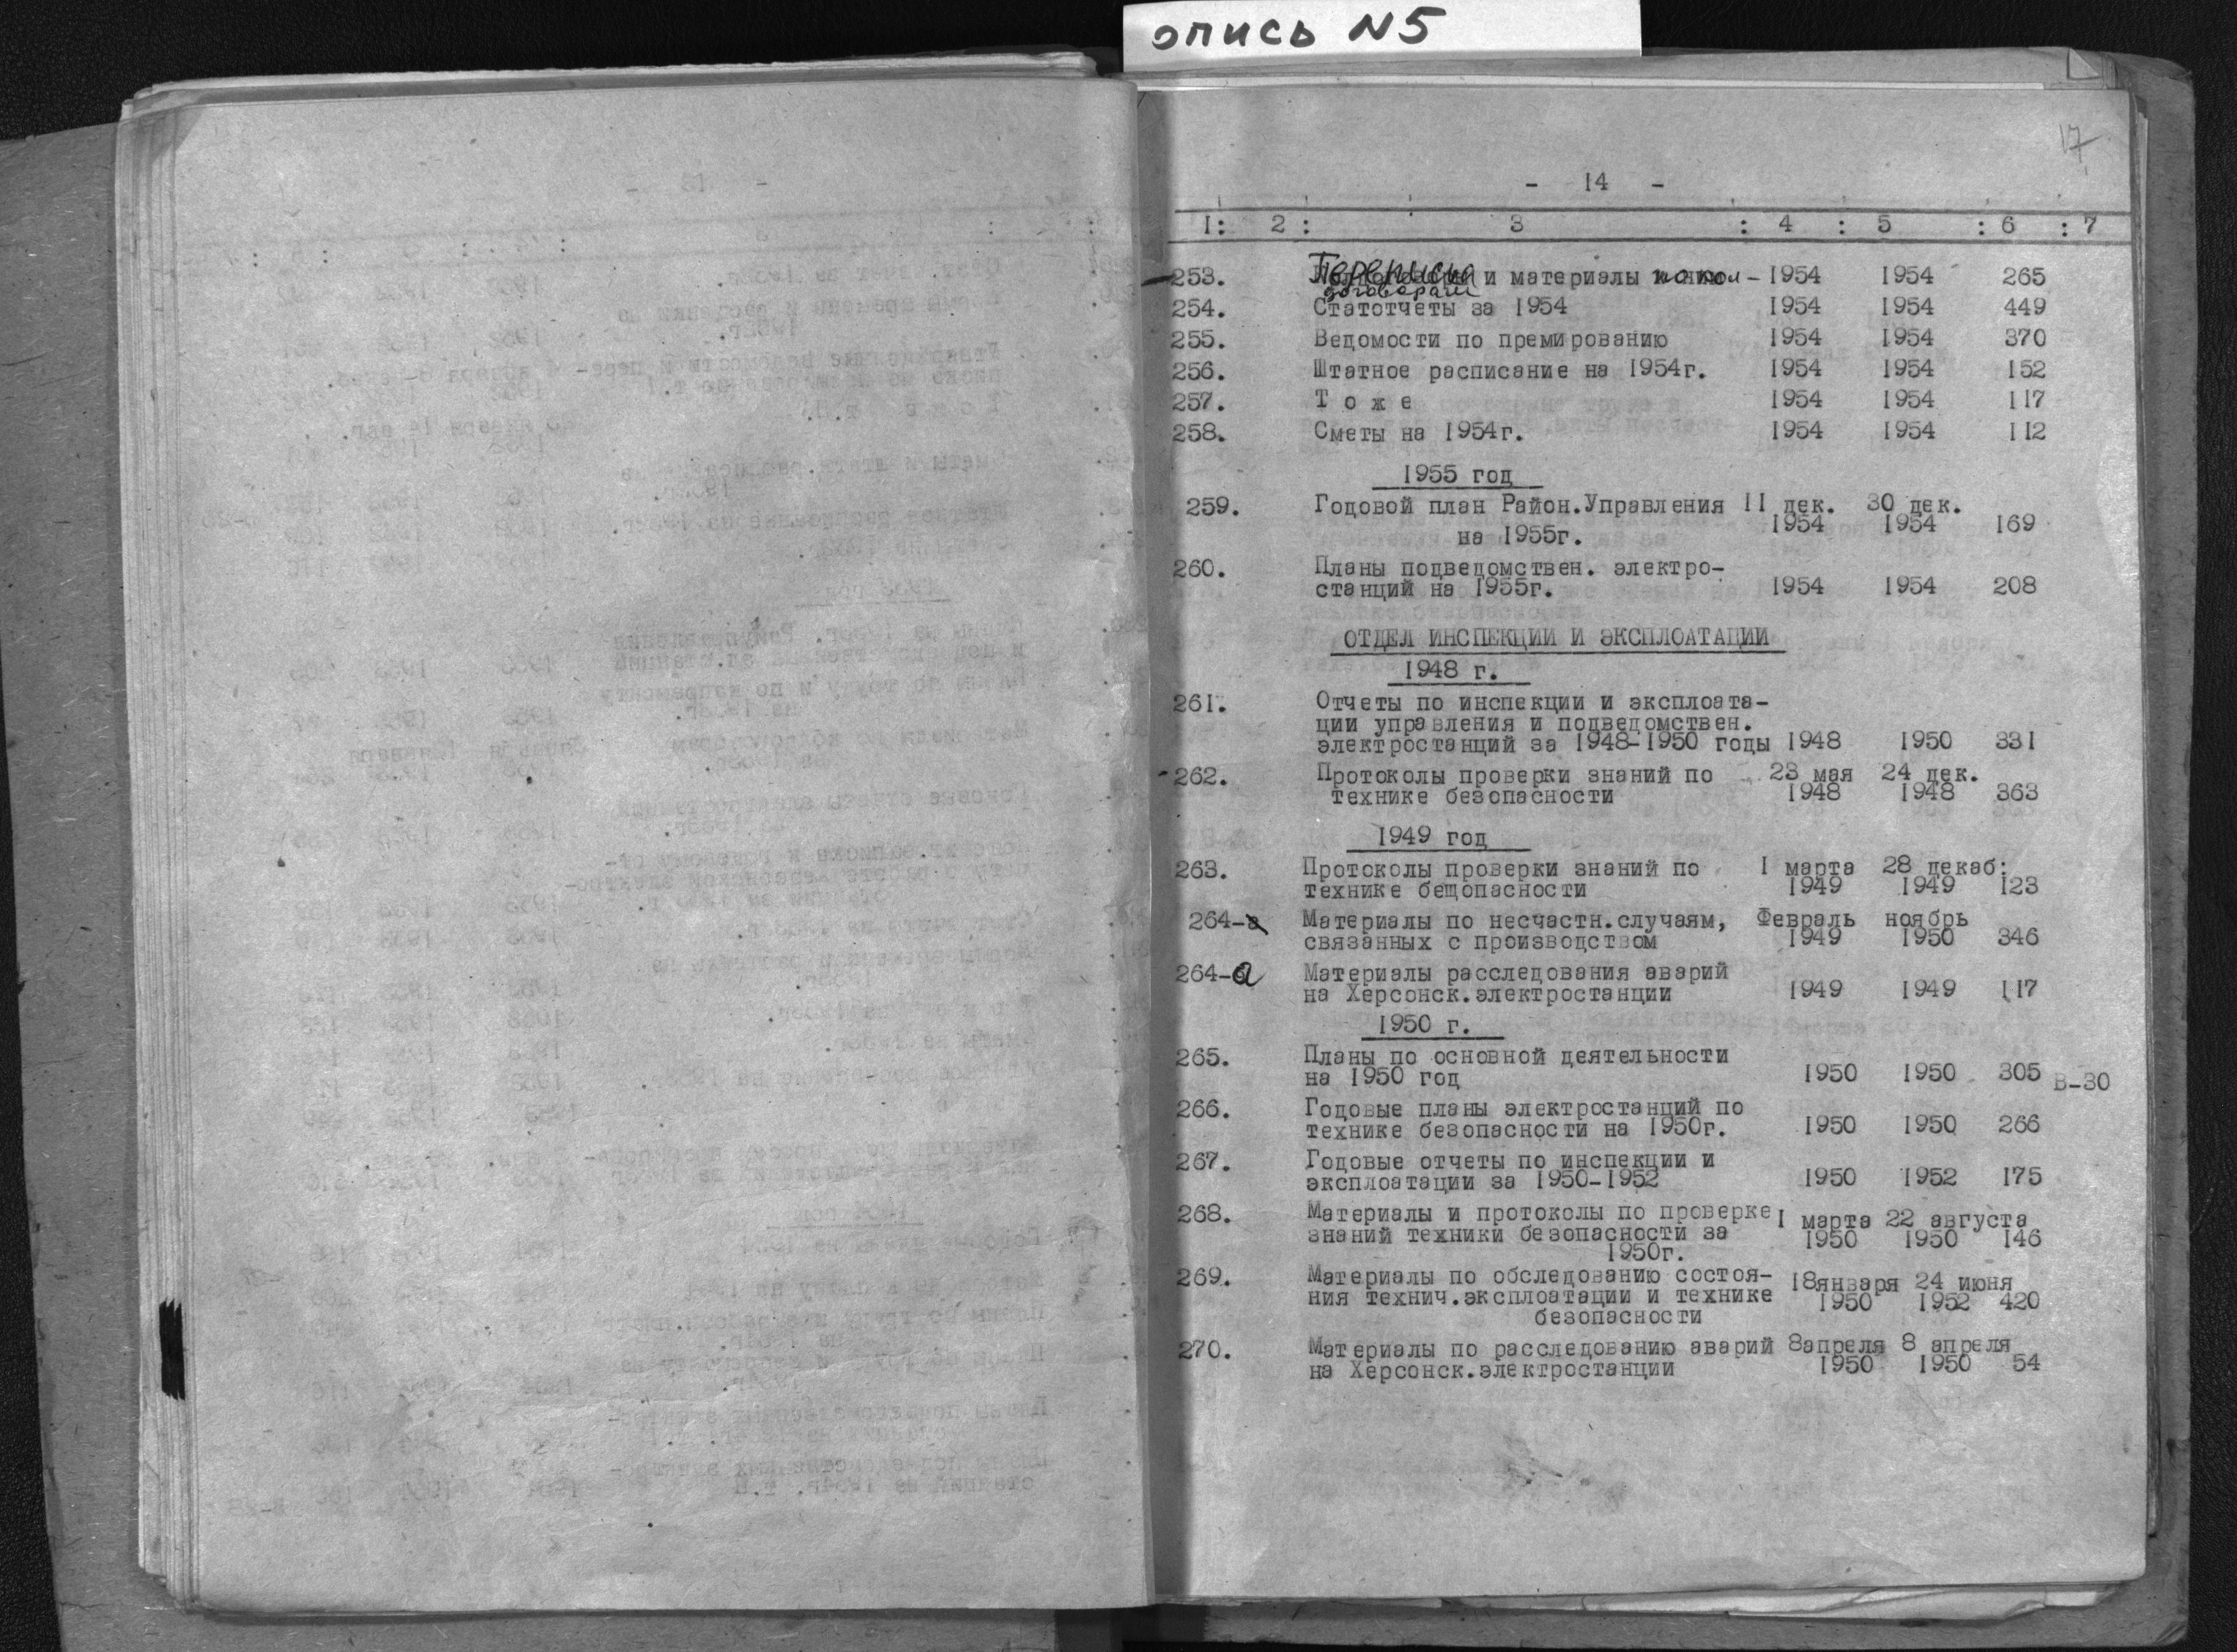 опись N5
17
- 14 -
1: 2 : 3 : 4 : 5 : 6 : 7
253. Переписка и материалы по кол- 1954 1954 265
договорам
254. Статотчеты за 1954 1954 1954 449
255. Ведомости по премированию 1954 1954 370
256. Штатное расписание на 1954г. 1954 1954 152
257. Т о ж е 1954 1954 117
258. Сметы на 1954г. 1954 1954 112
1955 год
259. Годовой план Район.Управления 11 дек. 30 дек.
на 1955г. 1954 1954 169
260. Планы подведомствен. электро-
станций на 1955г. 1954 1954 208
ОТДЕЛ ИНСПЕКЦИИ И ЭКСПЛОАТАЦИИ
1948 г.
261. Отчеты по инспекции и эксплоата-
ции управления и подведомствен.
электростанций за 1948-1950 годы 1948 1950 331
262. Протоколы проверки знаний по 23 мая 24 дек.
технике безопасности 1948 1948 363
1949 год
263. Протоколы проверки знаний по 1 марта 28 декаб:
технике бещопасности 1949 1949 123
264- Материалы по несчастн.случаям, Февраль ноябрь
связанных с производством 1949 1950 346
264-а Материалы расследования аварий
на Херсонск.электростанции 1949 1949 117
1950 г.
265. Планы по основной деятельности
на 1950 год 1950 1950 305 В-30
266. Годовые планы электростанций по
технике безопасности на 1950г. 1950 1950 266
267. Годовые отчеты по инспекции и
эксплоатации за 1950-1952 1950 1952 175
268. Материалы и протоколы по проверке 1 марта 22 августа
знаний техники безопасности за 1950 1950 146
1950г.
269. Материалы по обследованию состоя- 18января 24 июня
ния технич.эксплоатации и технике 1950 1952 420
безопасности
270. Материалы по расследованию аварий 8апреля 8 апреля
на Херсонск.электростанции 1950 1950 54